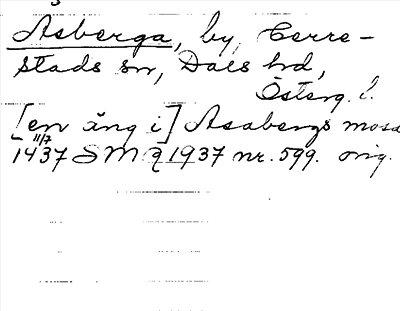 Asberga, by, Herre-
stads sn, Dals hd,
Österg. l.
[en äng i] Asabergs mosa
11/7
1437 SMR 1937 nr. 599. orig.